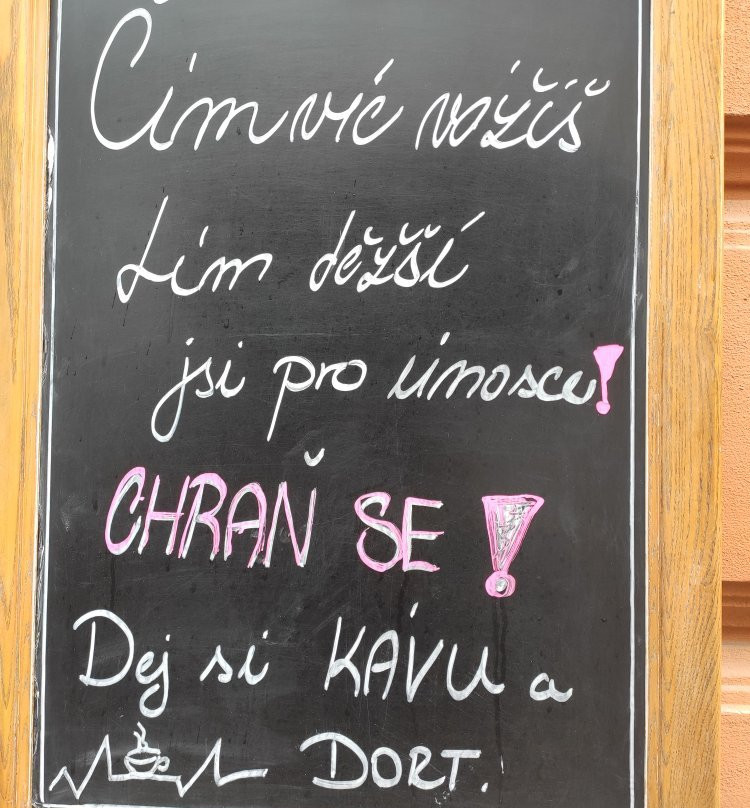 Čím víc vážíš
tím těžší
jsi pro únosce!
CHRAŇ SE!
Dej si KÁVU a
DORT.